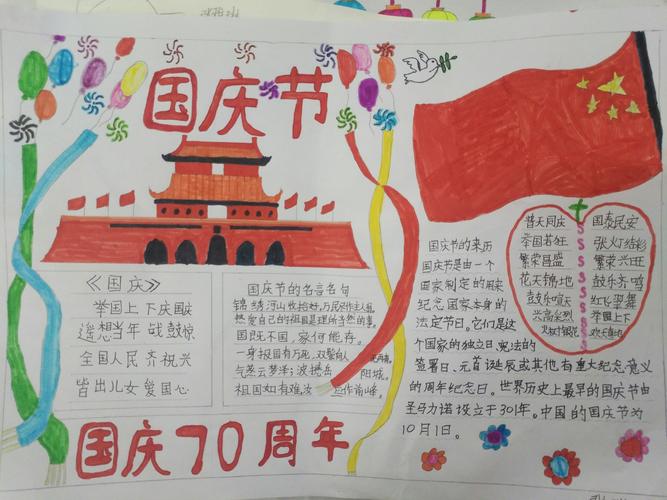 国庆节
《国庆》
举国上下庆国庆
遥想当年战鼓惊
全国人民齐祝兴
皆出儿女爱国心
国庆节的名言名句
锦绣河山收拾好,万民尽作主人翁
热爱自己的祖国是理所当然的事。
国既不国,家何能存。
一身报国有万死,双鬓向人无再青。
气蒸云梦泽,波撼岳阳城。
祖国如有难,汝应作前峰。
国庆节的来历
国庆节是由一个
国家制定的用来
纪念国家本身的
法定节日。它们是这
个国家的独立日、宪法的
签署日、元首诞辰或其他有重大纪念意义
的周年纪念日。世界历史上最早的国庆节由
圣马力诺设立于301年。中国的国庆节为
10月1日。
普天同庆
举国若狂
繁荣昌盛
花天锦地
鼓乐喧天
兴高采烈
火树银花
国泰民安
张灯结彩
繁荣兴旺
鼓乐齐鸣
红飞翠舞
举国上下
欢天喜地
国庆70周年